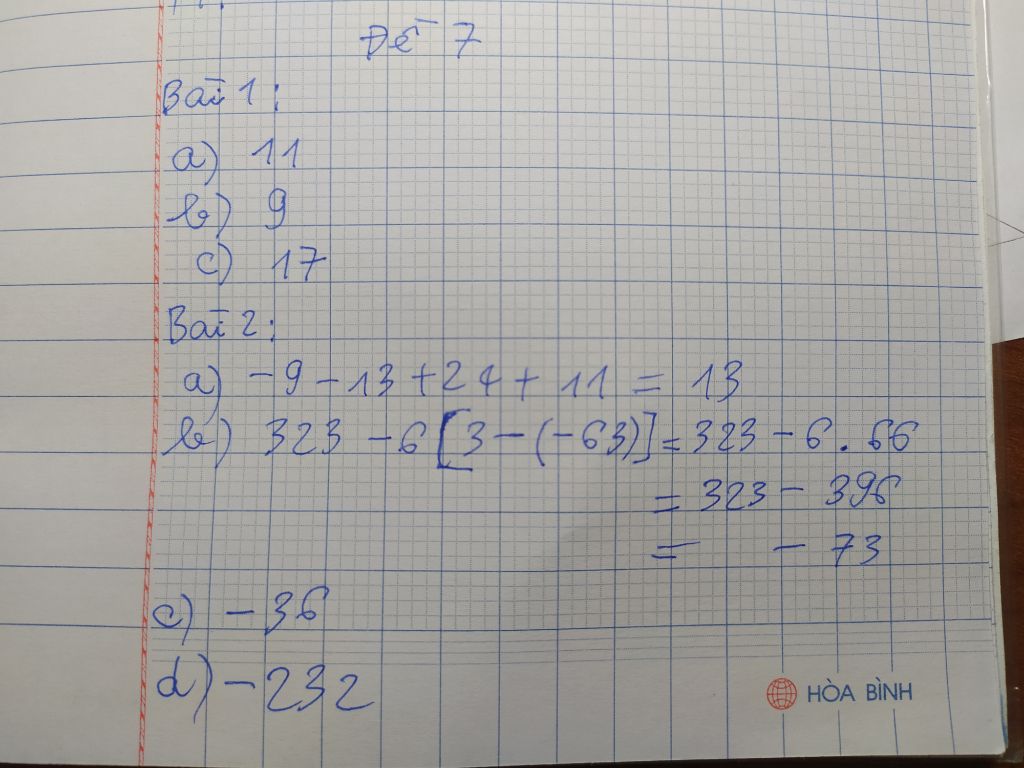 Đề 7
Bài 1:
a) 11
b) 9
c) 17
Bài 2:
a) -9 - 13 + 24 + 11 = 13
b) 323 - 6 [3 - (-63)] = 323 - 6 . 66
= 323 - 396
= - 73
c) - 36
d) - 232
HÒA BÌNH